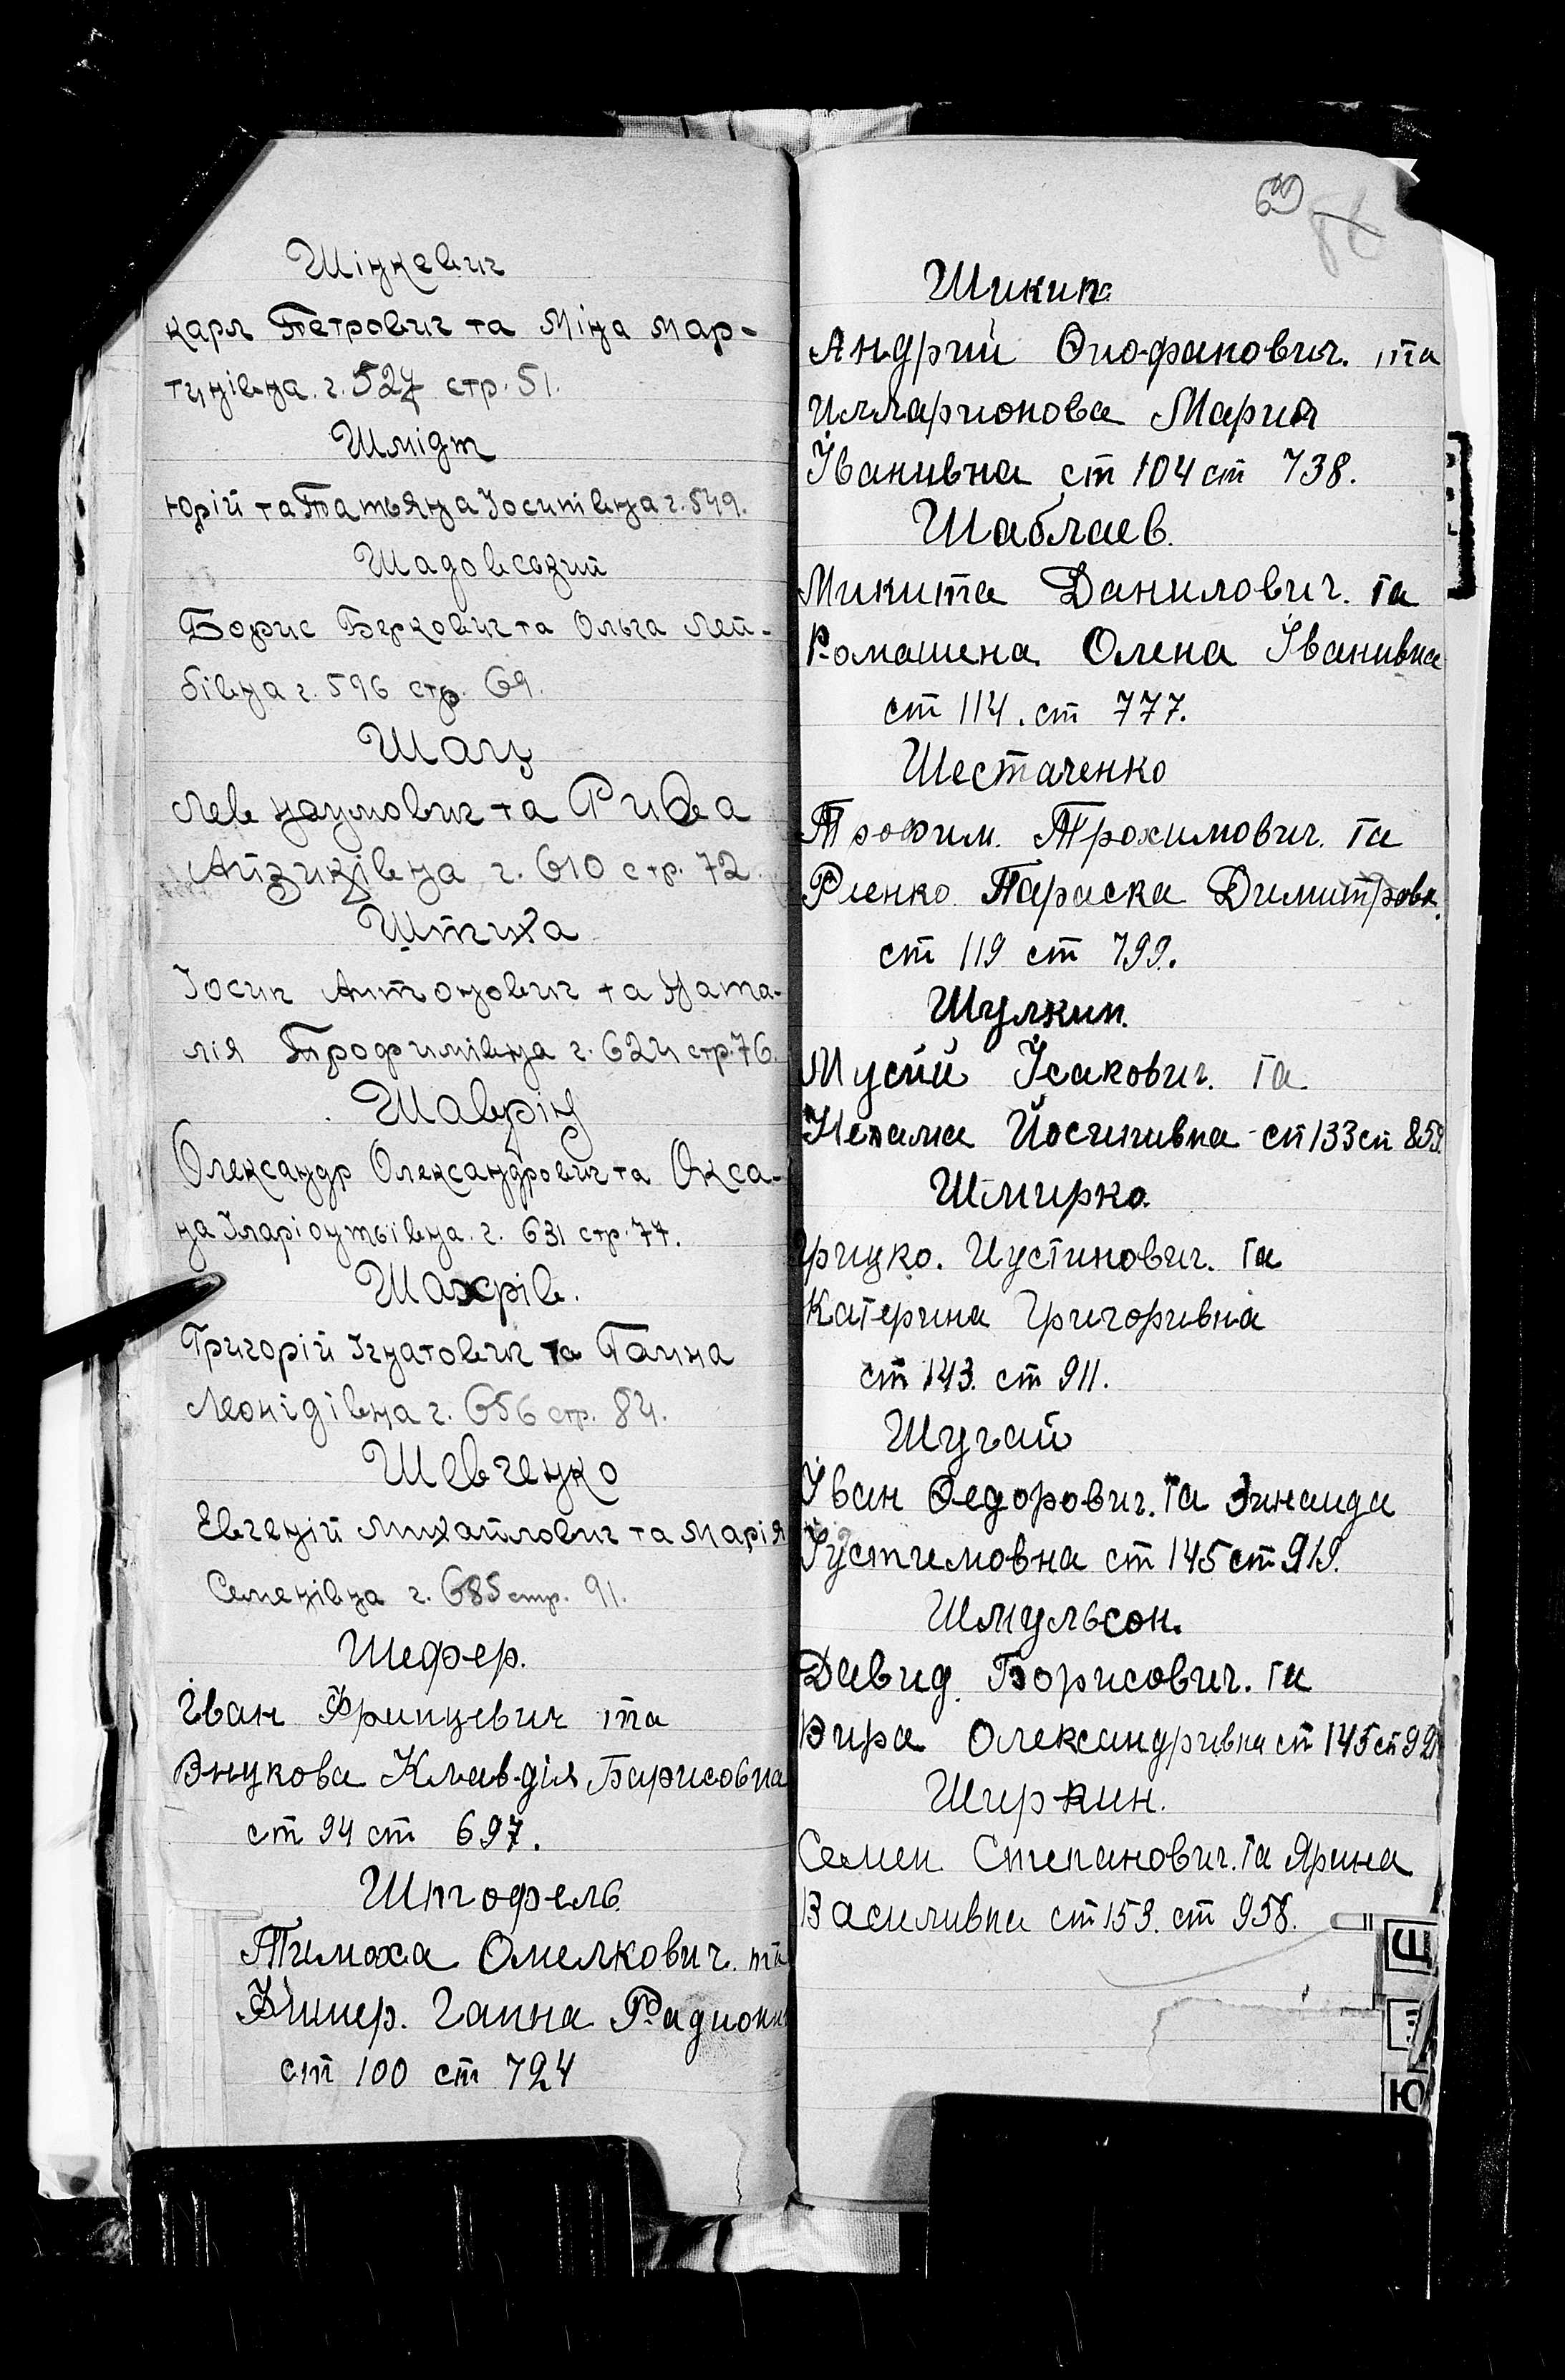 Шінкевич
карл Петрович та Міна Мар-
тинівна. г. 527 стр. 51.
Шмідт
Юрій та Татьяна Іосипівна г. 549.
Шадовський
Борис Беркович та Ольга Лей-
бівна г. 596 стр. 69.
Шац
Лев наумович та Рива
Айзиківна г. 610 стр. 72.
Штиха
Іосип Антонович та Ната-
лія Трофимівна г. 624 стр. 76.
Шаврін
Олександр Олександрович та Окса-
на Іларіонтьівна. г. 631 стр. 77.
Шахрів.
Григорій Ігнатович та Ганна
Леонідівна г. 656 стр. 84.
Шевченко
Евгеній Михайлович та Марія
Семенівна г. 685 стр. 91.
Шефер.
Іван Францевич та
Внукова Клавдія Барисовна
ст 94 ст 697.
Штофель
Тимоха Омелкович. та
Ганна Радион
ст 100 ст 724
69
Шикин
Андрий Феофанович. та
Илларионова Мария
Іванивна ст 104 ст 738.
Шаблаев.
Микита Данилович. та
Ромашена Олена Іванивна
ст 114. ст 777.
Шестаченко
Трофим. Трохимович. та
Параска Димитровн.
ст 119 ст 799.
Шулкин.
Мусий Ісакович. та
Нехама Йосипивна ст 133 ст 859.
Шмирко.
Грицко. Иустинович. та
Катерина Григоривна
ст 143. ст 911.
Шугай
Іван Федорович. та Зинаида
Іустимовна ст 145 ст 919.
Шмульсон.
Давид. Борисович. та
Вира Олександривна ст 145 ст 92
Ширкин.
Семен Степанович. та Ярина
Василивна ст 153. ст 958.
Щ
Ю